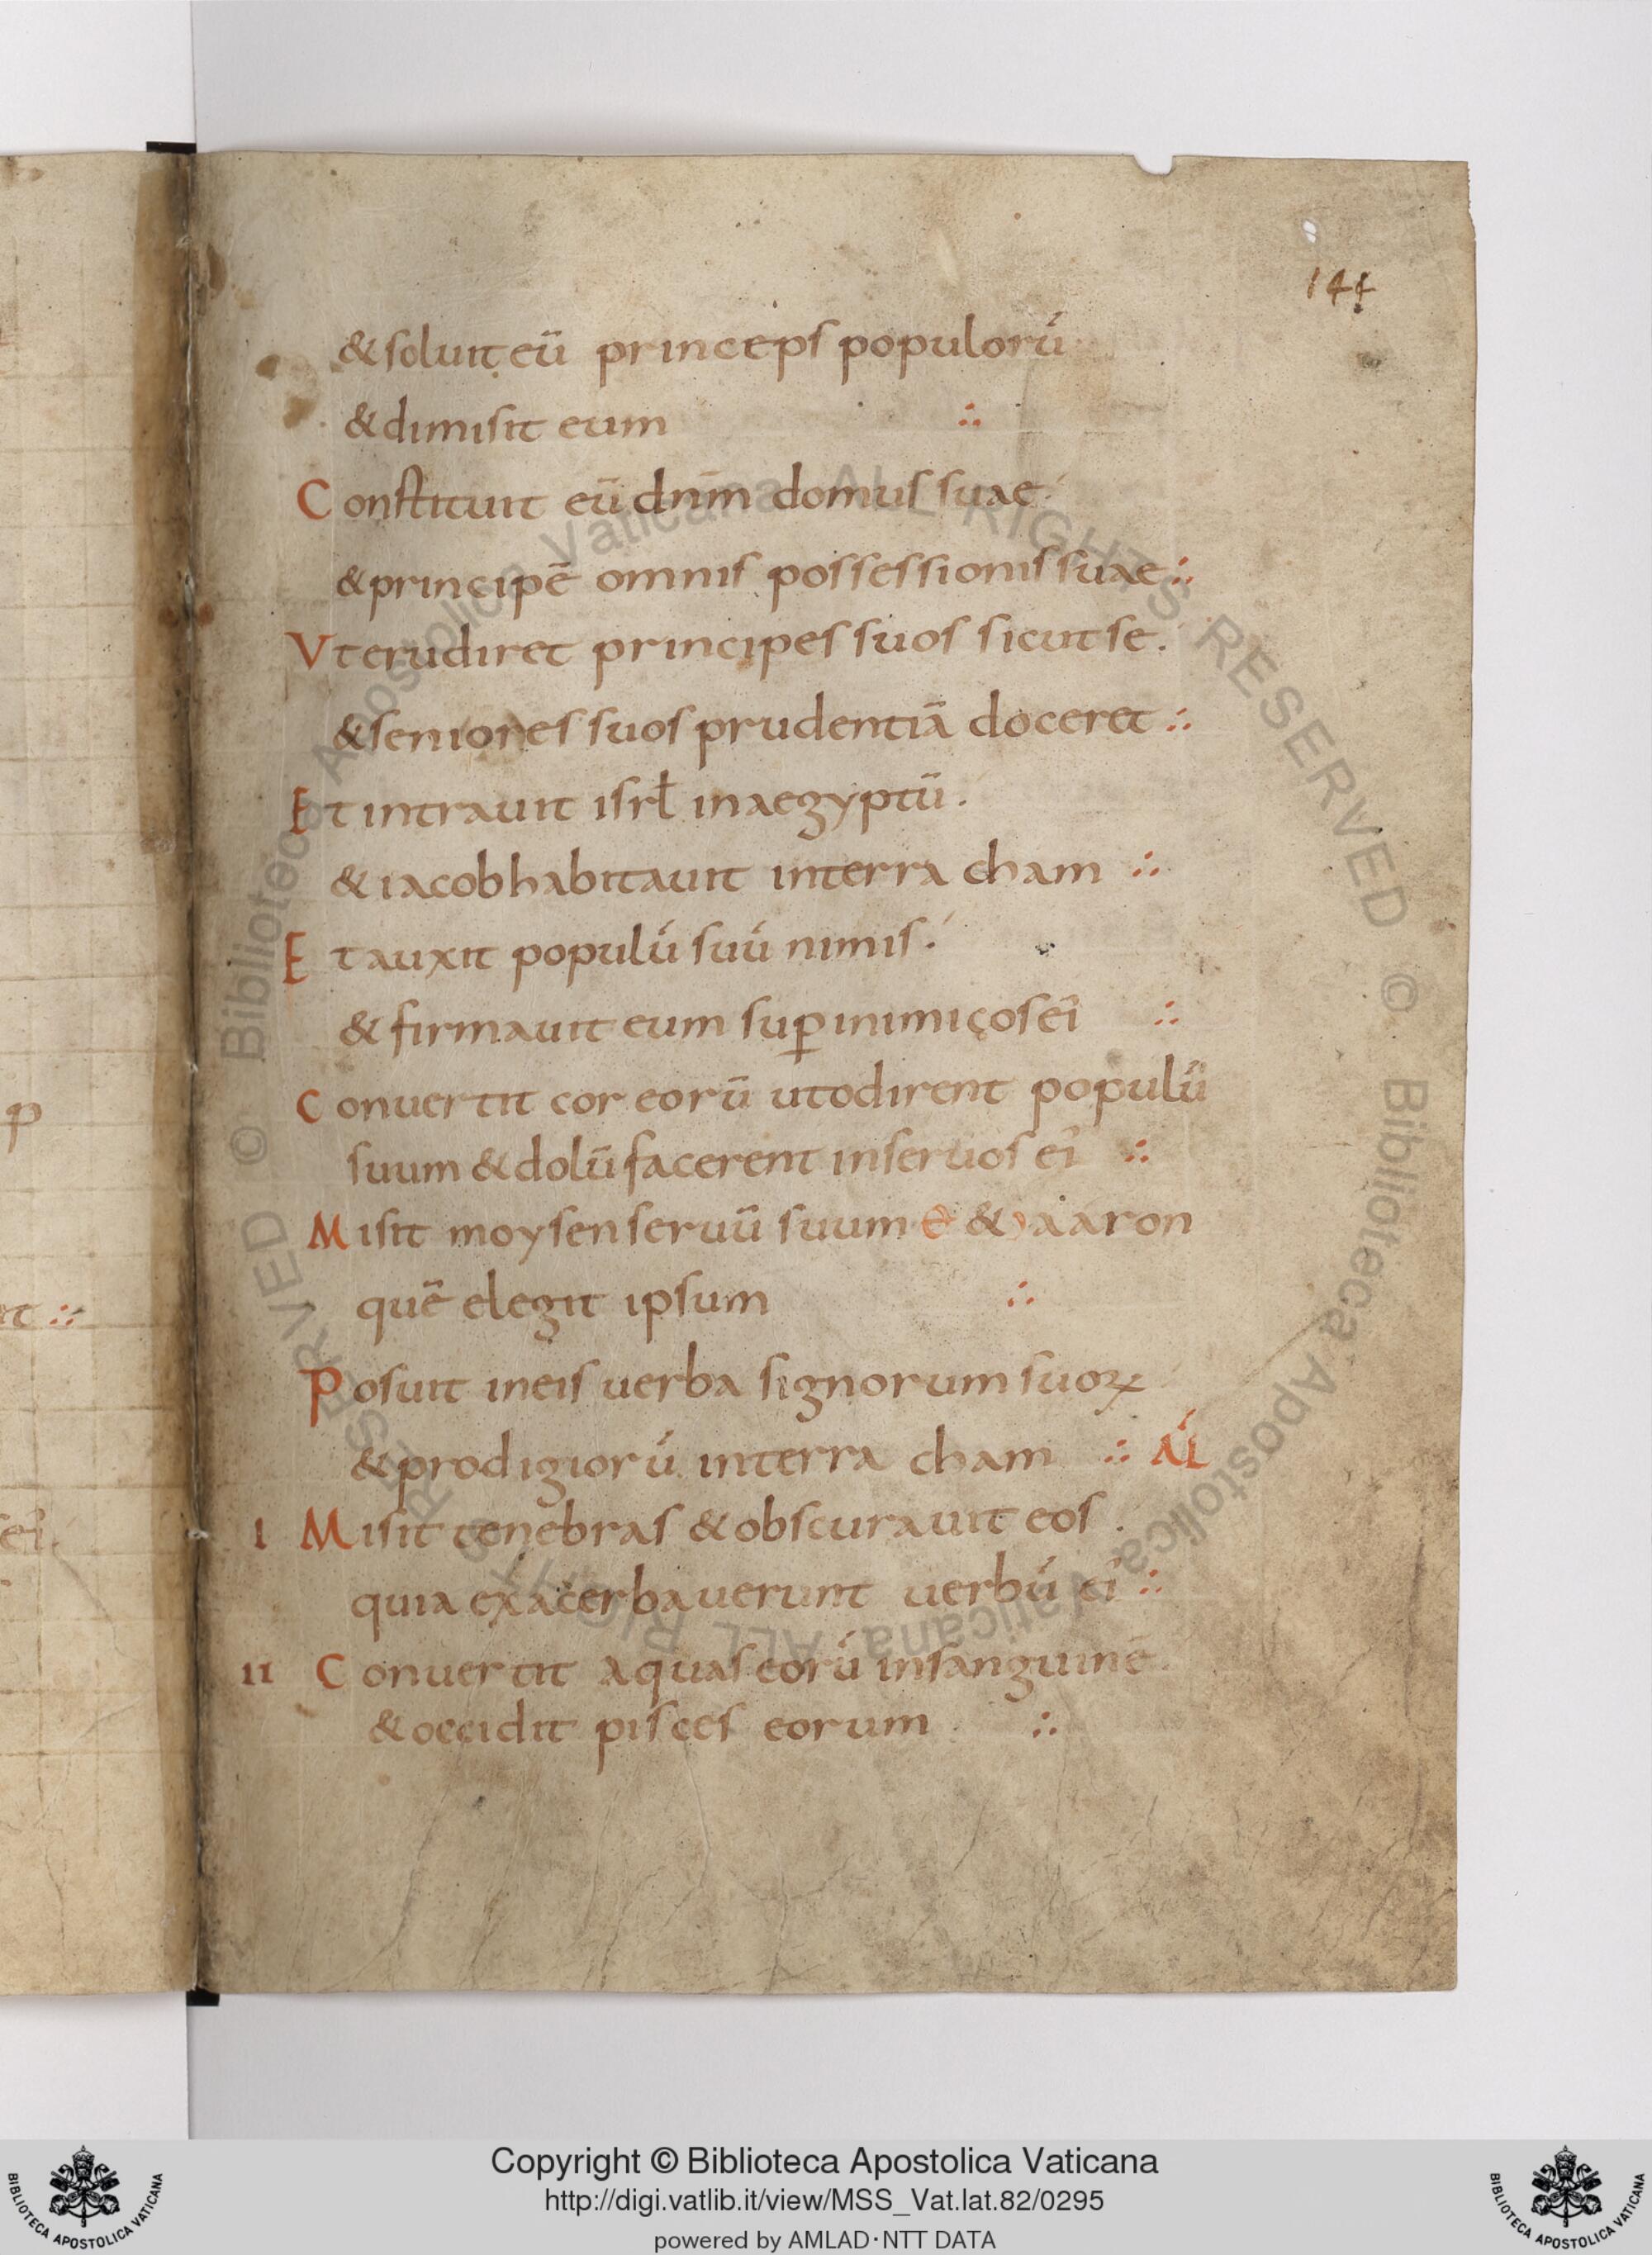 144
& soluit eū princeps populorū
& dimisit eum ∴
Constituit eū dn̄m domus suae.
& principē omnis possessionis suae ∴
Vt erudiret principes suos sicut se.
& seniores suos prudentiā doceret ∴
Et intrauit isrł in aegyptū.
& iacob habitauit in terra cham ∴
Et auxit populū suū nimis.
& firmauit eum suꝑ inimicos ei ∴
Conuertit cor eorū ut odirent populū
suum & dolū facerent in seruos ei ∴
Misit moysen seruū suum & aaron
quē elegit ipsum ∴
Posuit in eis uerba signorum suoꝝ
& prodigiorū in terra cham ∴ AL
I Misit tenebras & obscurauit eos.
quia exacerbauerunt uerbū ei ∴
II Conuertit aquas eorū in sanguinē.
& occidit pisces eorum ∴
p
it ∴
sei
© Biblioteca Apostolica Vaticana ALL RIGHTS RESERVED © Biblioteca Apostolica Vaticana ALL RIGHTS RESERVED
Copyright © Biblioteca Apostolica Vaticana
http://digi.vatlib.it/view/MSS_Vat.lat.82/0295
powered by AMLAD·NTT DATA
BIBLIOTECA APOSTOLICA VATICANA
BIBLIOTECA APOSTOLICA VATICANA